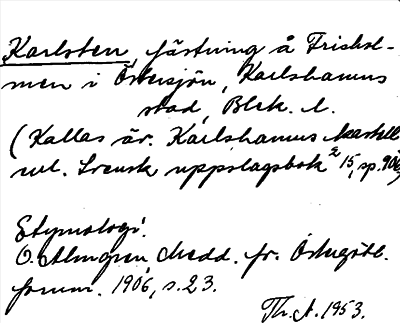 Karlsten, fästning å Frishol-
men i Östersjön, Karlshamns
stad, Blek. l.
(Kallas äv. Karlshamns kastell
enl. Svensk uppslagsbok² 15, sp. 906)
Etymologi:
O. Almgren, Medd. fr. Östergötl.
fornm. 1906, s. 23.
Th. A. 1953.